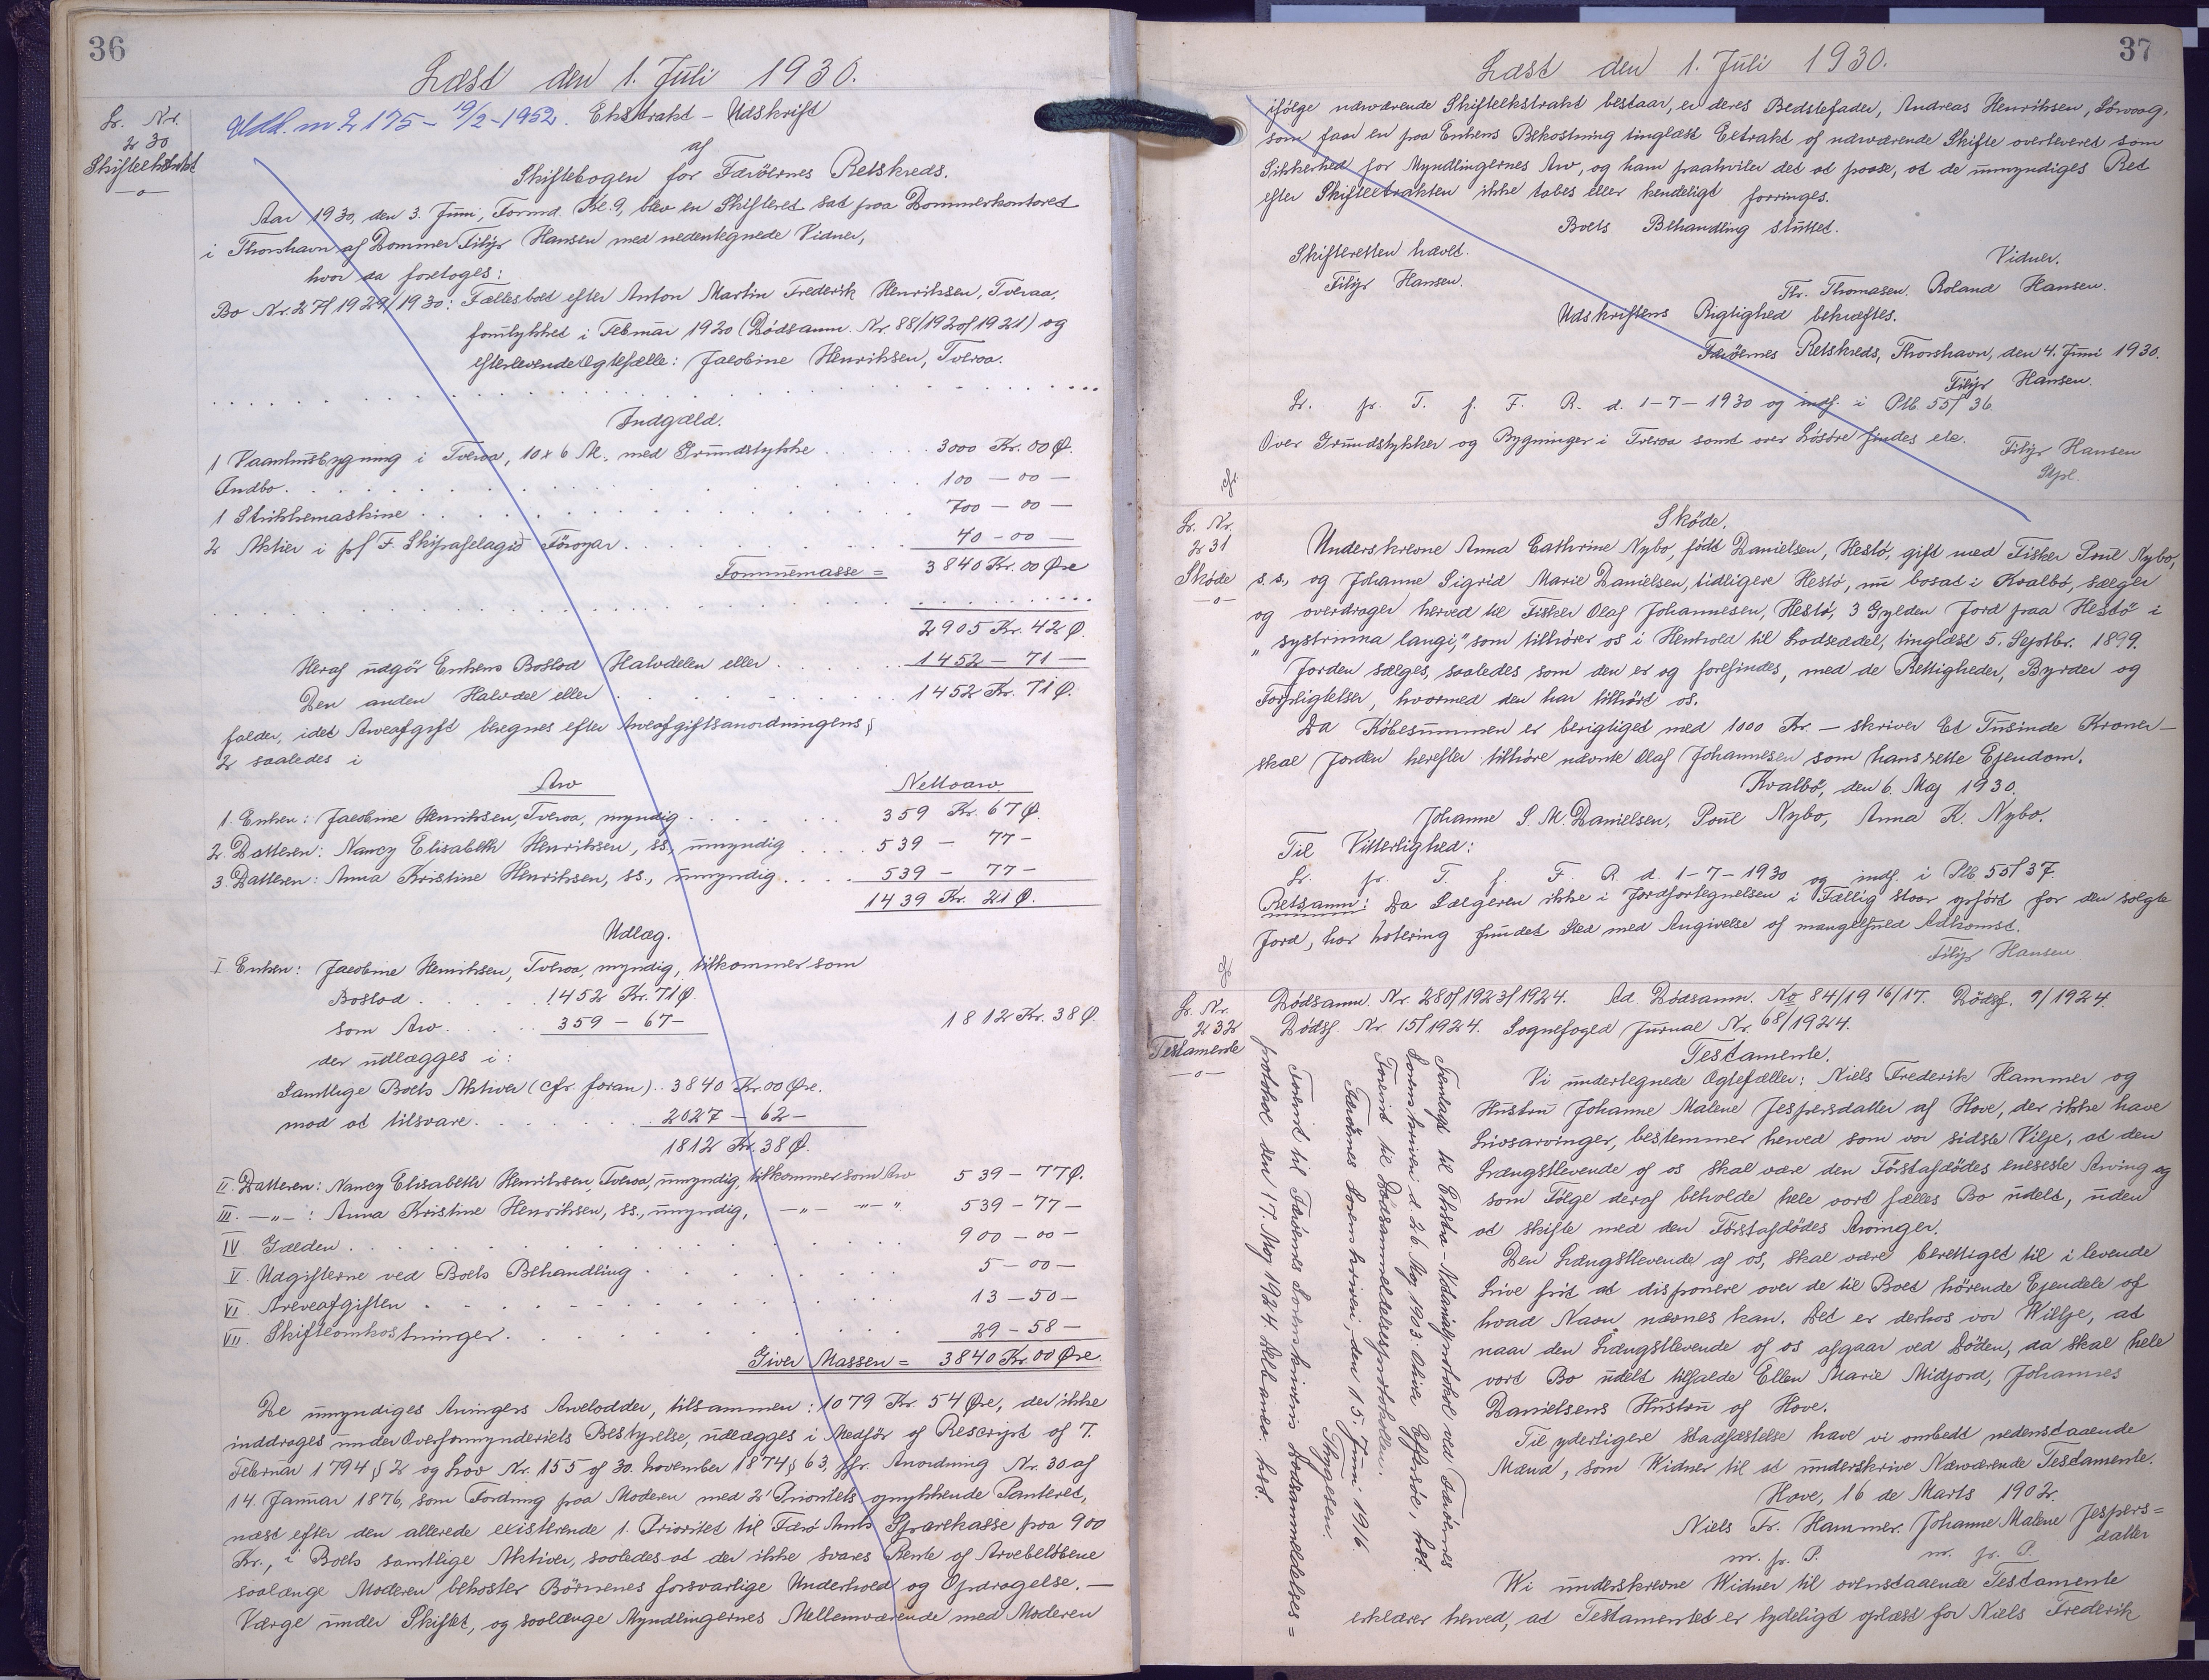 36
Læst den 1. Juli 1930.
Lr. Nr.
230
Skifteekstrakt
—o—
Udsl. nr 2175 - 19/2-1952. Ekstrakt - Udskrift
af
Skiftebogen for Færöernes Retskreds.
Aar 1930, den 3. Juni, Formd. Kl. 9, blev en Skifteret sat paa Dommerkontoret
i Thorshavn af Dommer Filip Hansen med nedentegnede Vidner,
hvor da foretoges:
Bo Nr. 27/1929/1930: Fællesboet efter Anton Martin Frederik Henriksen, Tveraa,
forulykket i Februar 1920 (Dödsanm. Nr. 88/1920/1921) og
efterlevende Ægtefælle: Jacobine Henriksen, Tveraa.
Indgæld.
1 Vaaningsbygning i Tveraa, 10 x 6 Al., med Grundstykke . . . . 3000 Kr. 00 Ø.
Indbo . . . . 100 — 00 —
1 Strikkemaskine . . . . 700 — 00 —
2 Aktier i p/f F. Skipafelagið Föroyar . . . . 40 — 00 —
Formuemasse = 3840 Kr. 00 Øre
2905 Kr. 42 Ø.
Heraf udgör Enkens Boslod Halvdelen eller . . . . 1452 — 71 —
Den anden Halvdel eller . . . . 1452 Kr. 71 Ø.
falder, idet Arveafgift beregnes efter Arveafgiftsanordningens §
2 saaledes i
Arv Nettoarv.
1. Enken: Jacobine Henriksen, Tveraa, myndig . . . . 359 Kr. 67 Ø.
2. Datteren: Nancy Elisabeth Henriksen, ss., umyndig . . . . 539 — 77 —
3. Datteren: Anna Kristine Henriksen, ss., umyndig . . . . 539 — 77 —
1439 Kr. 21 Ø.
Udlæg.
I Enken: Jacobine Henriksen, Tveraa, myndig, tilkommer som
Boslod . . . . 1452 Kr. 71 Ø.
som Arv . . . . 359 — 67 — 1812 Kr. 38 Ø.
der udlægges i:
Samtlige Boets Aktiver (cfr. foran) . . 3840 Kr. 00 Øre.
mod at tilsvare . . . . 2027 — 62 —
1812 Kr. 38 Ø.
II. Datteren: Nancy Elisabeth Henriksen, Tveraa, umyndig, tilkommer som Arv 539 — 77 Ø.
III. —„— : Anna Kristine Henriksen, ss., umyndig, —„— —„— „ 539 — 77 —
IV. Gælden . . . . 900 — 00 —
V. Udgifterne ved Boets Behandling . . . . 5 — 00 —
VI. Arveafgiften . . . . 13 — 50 —
VII. Skifteomkostninger . . . . 29 — 58 —
Giver Massen = 3840 Kr. 00 Øre.
De umyndiges Arvingers Arvelodder, tilsammen: 1079 Kr. 54 Øre, der ikke
inddrages under Overformynderiets Bestyrelse, udlægges i Medför af Rescript af 7.
Februar 1794 § 2 og Lov Nr. 155 af 30. November 1874 § 63, jfr. Anordning Nr. 30 af
14. Januar 1876, som Fordring paa Moderen med 2' Prioritets oprykkende Panteret,
næst efter den allerede existerende 1. Prioritet til Færö Amts Sparekasse paa 900
Kr., i Boets samtlige Aktiver, saaledes at der ikke svares Rente af Arvebelöbene
saalænge Moderen bekoster Börnenes forsvarlige Underhold og Opdragelse. —
Værge under Skiftet, og saalænge Myndlingernes Mellemværende med Moderen
37
Læst den 1. Juli 1930.
ifölge nærværende Skifteekstrakt bestaar, er deres Bedstefader, Andreas Henriksen,
som faar en paa Enkens Bekostning tinglæst Extrakt af nærværende Skifte overleveret som
Sikkerhed for Myndlingernes Arv, og ham paahviler det at paase, at de umyndiges Ret
efter Skifteextrakten ikke tabes eller kendeligt forringes.
Boets Behandling sluttet.
Skifteretten hævet.
Filip Hansen.
Vidner.
Thr. Thomasen. Roland Hansen.
Udskriftens Rigtighed bekræftes.
Færöernes Retskreds, Thorshavn, den 4. Juni 1930.
Filip Hansen.
Lr. fr. T. f. F. R. d. 1-7-1930 og indf. i Ptb. 55/36.
Over Grundstykker og Bygninger i Tveraa samt over Lösöre findes ele.
Filip Hansen
Stpl.
cfr.
Lr. Nr.
231
Sköde
—o—
Sköde.
Underskrevne Anna Cathrine Nybo, födt Danielsen, Hestö, gift med Fisker Poul Nybo,
s.s., og Johanne Sigrid Marie Danielsen, tidligere Hestö, nu bosat i Kvalbö, sælger
og overdrager herved til Fisker Olaf Johannesen, Hestö, 3 Gylden Jord paa Hestö i
„systrinna langi," som tilhörer os i Henhold til Lodseddel, tinglæst 5. Septbr. 1899.
Jorden sælges, saaledes som den er og forefindes, med de Rettigheder, Byrder og
Forpligtelser, hvormed den har tilhört os.
Da Köbesummen er berigtiget med 1000 Kr. — skriver Et Tusinde Kroner —
skal Jorden herefter tilhöre nævnte Olaf Johannesen som hans rette Ejendom.
Kvalbö, den 6. Maj 1930.
Johanne S. M. Danielsen, Poul Nybo, Anna K. Nybo.
Til Vitterlighed:
Lr. fr. T. f. F. R. d. 1-7-1930 og indf. i Ptb 55/37.
Retsanm: Da Sælgeren ikke i Jordfortegnelsen i Fællig staar opfört for den solgte
Jord, har notering fundet Sted med Angivelse af mangelfuld Adkomst.
Filip Hansen
cfr
Lr. Nr.
232
Testamente
—o—
Dödsanm. Nr. 280/1923/1924. Ad. Dödsanm. No 84/1916/17. Dödsf. 9/1924.
Dödsf. Nr 15/1924. Sognefoged Jurnal Nr. 68/1924.
Testamente.
Vi undertegnede Ægtefæller: Niels Frederik Hammer og
Hustru Johanne Malene Jespersdatter af Hove, der ikke have
Livsarvinger, bestemmer herved som vor sidste Vilje, at den
Længstlevende af os skal være den Förstafdödes eneseste Arving og
som Fölge deraf beholde hele vort fælles Bo udelt, uden
at skifte med den Förstafdödes Arvinger.
Den Længstlevende af os, skal være berettiget til i levende
Live frit at disponere over de til Boet hörende Ejendele af
hvad Navn nævnes kan. Det er derhos vor Willje, at
naar den Længstlevende af os afgaar ved Döden, da skal hele
vort Bo udelt tilfalde Ellen Marie Midjord, Johannes
Danielsens Hustru af Hove.
Til yderligere Stadfæstelse have vi ombedt nedenstaaende
Mænd, som Widner til at underskrive Nærværende Testamente.
Hove, 16 de Marts 1902.
Niels Fr. Hammer. Johanne Malene Jespers=
datter
m. f. P. m. f. P.
Wi underskrevne Widner til ovenstaaende Testamente
erklærer herved, at Testamentet er tydeligt oplæst for Niels Frederik
Fremlagt til Ekstra-Notarialprotokol ved Færöernes
Sorenskriveri d. 26. Maj 1903. Olive Effersöe, kst.
Forevist til Dödsanmeldelsesprotokollen.
Færöernes Sorenskriveri, den 15. Juni 1916.
Thygesen.
Forevist til Færöernes Sorenskriveris Dödsanmeldelses=
protokol den 17. Maj 1924.